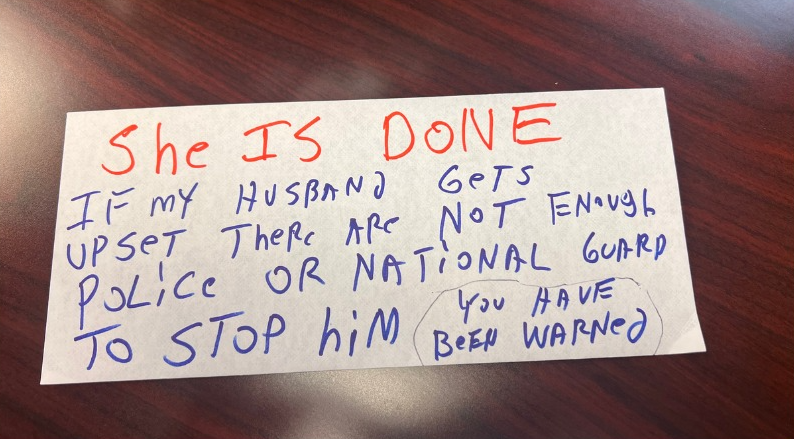 She IS DONE
IF MY HUSBAND GeTS
UPSET TheRe ARe NOT ENough
POLiCe OR NATiONAL GUARD
TO STOP hiM
You HAVE
BeEN WARNed